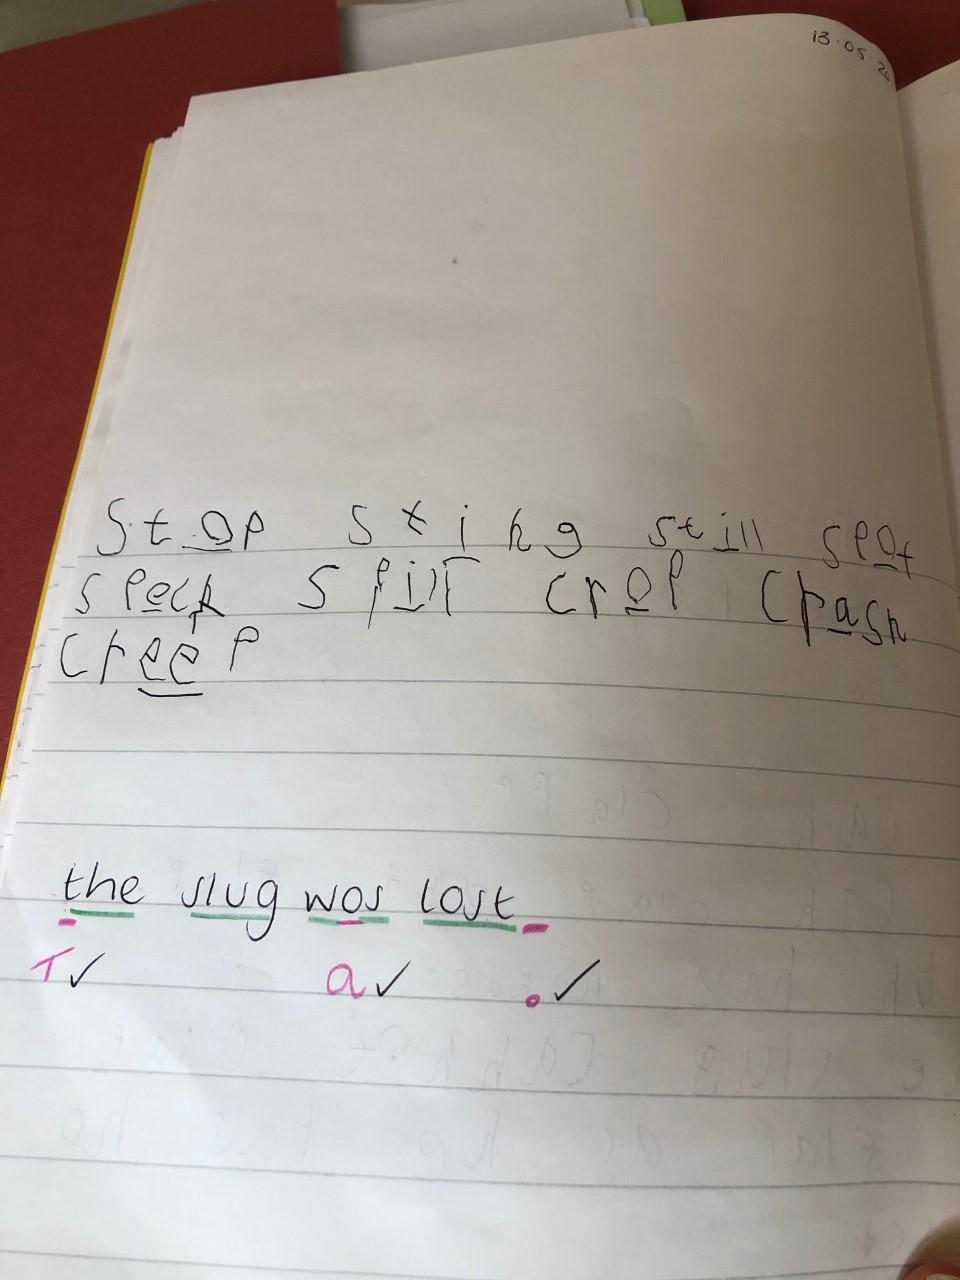 13.05.2
Stop sting still spot
speck spill crop crash
creep
the slug was lost
T✓ a✓ .✓